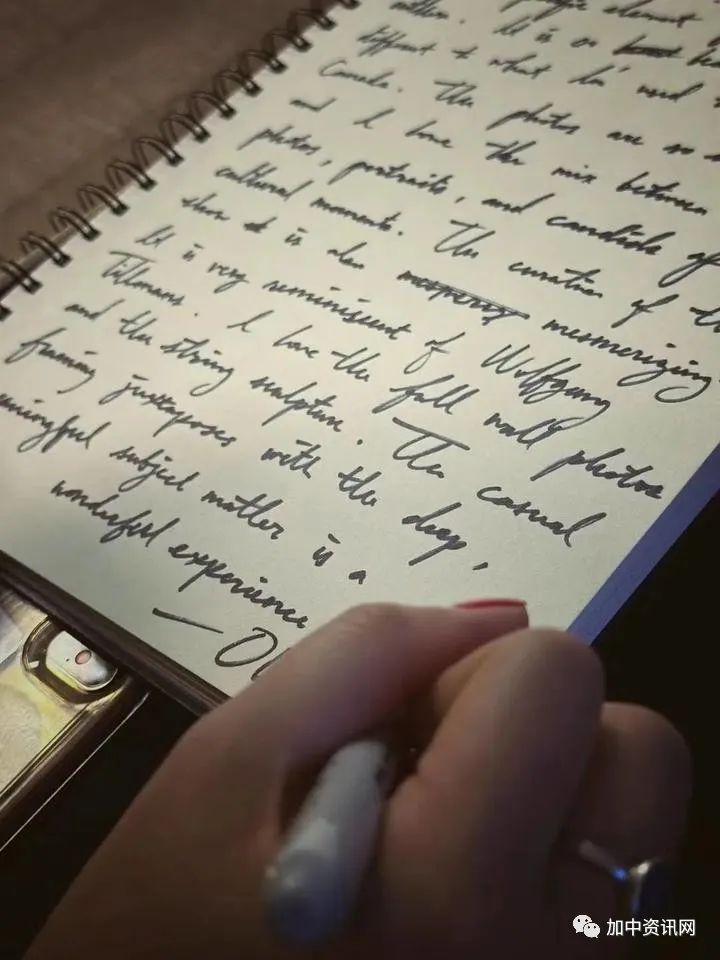 element
. It is a
different to what I'm used
Canada. The photos are so
and I love the mix between
photos, portraits, and candids of
cultural moments. The curation of
show it is also mesmerizing.
It is very reminiscent of Wolfgang
Tillmans. I love the full wall photos
and the string sculpture. The casual
framing juxtaposes with the deep,
meaningful subject matter is a
wonderful experience
加中资讯网